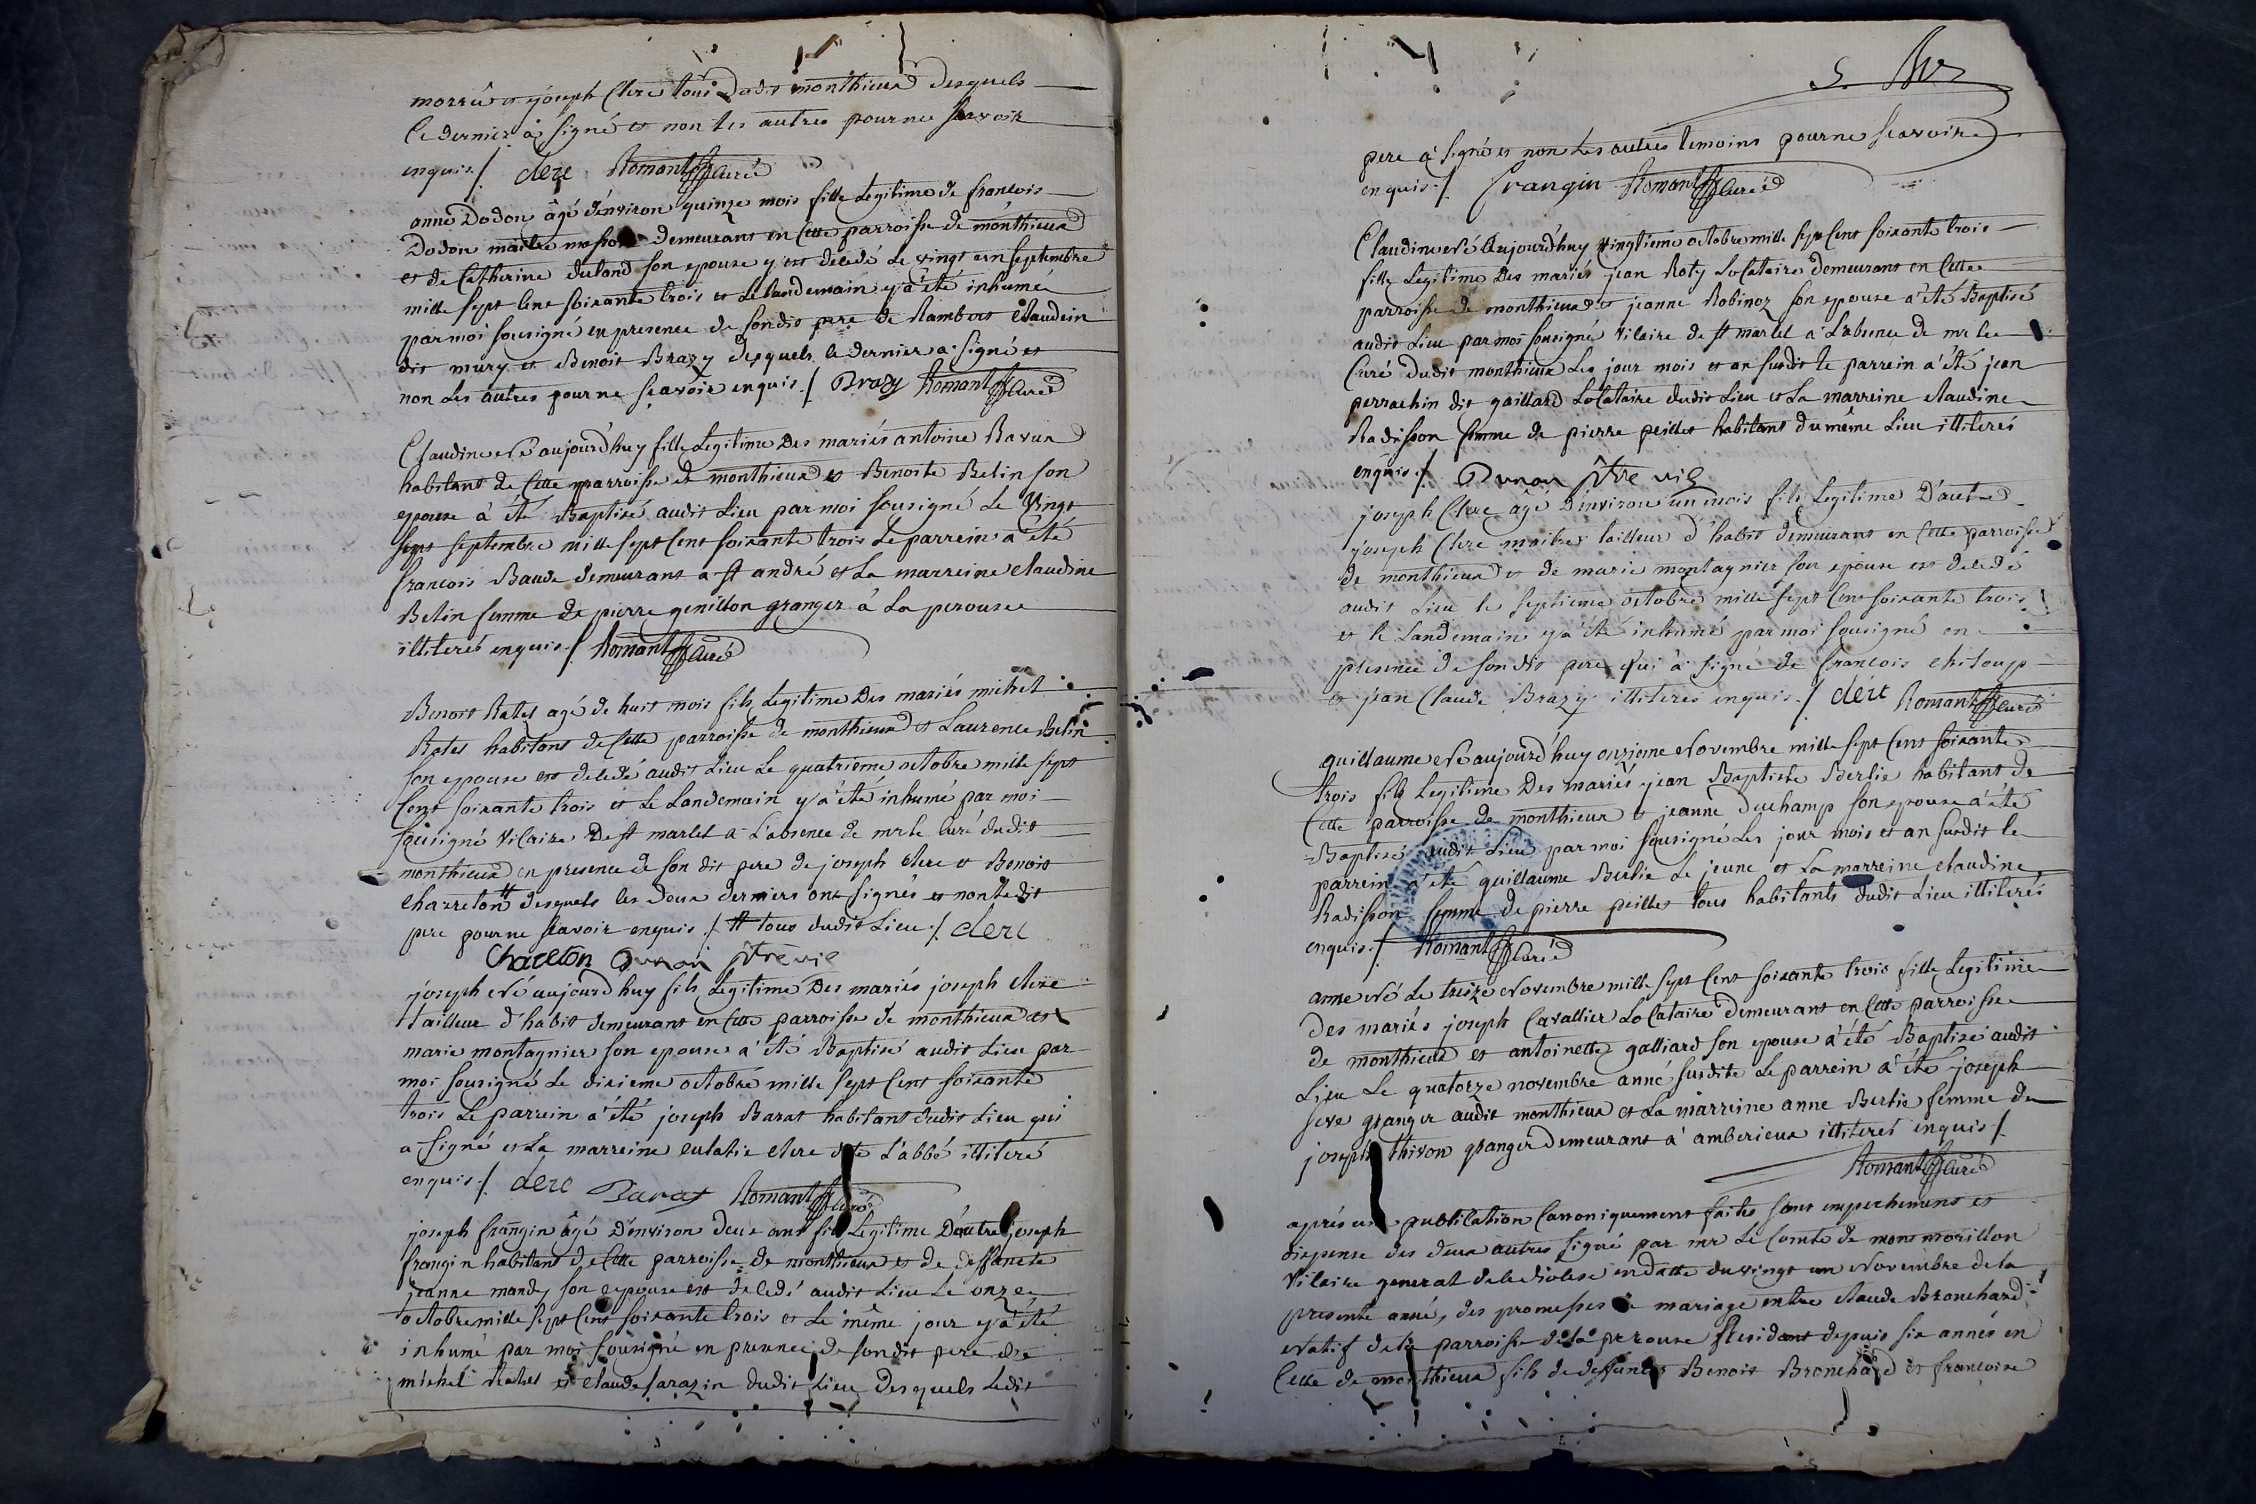 morrie et joseph Clere tous dudit monthieux desquels
le dernier à signé et non les autres pour ne sçavoir
enquis ./. clerc Romant curé
anne Dodon âgé d'environ quinze mois fille Legitime de francois
Dodon maitre masson demeurant en cette parroisse de monthieux
et de Catherine duland son epouse y est décédé le vingt un septembre
mille sept cent soixante trois et le landemain y a été inhumé
par moi sousigné en presence de sondit pere de Rambert Claudin
dit mury et Benoit Brazy desquels le dernier a signé et
non les autres pour ne sçavoir enquis ./. Brazy Romant curé
Claudine Né aujourd'huy fille Legitime Des mariés antoine Ravux
habitant de cette parroisse de monthieux et Benoite Belin son
epouse à été Baptisé audit Lieu par moi sousigné Le Vingt
sept septembre mille sept cent soixante trois Le parrein a été
francois Baude demeurant a st andré et La marreine claudine
Belin femme de pierre genillon granger à La perouse
illiterés enquis ./. Romant curé
Benoit Ratel agé de huit mois fils Legitime Des mariés michel
Ratel habitant de Cette parroisse de monthieux et Laurence Belin
son epouse est decedé audit Lieu Le quatrieme octobre mille sept
Cent soixante trois et Le Landemain y a été inhumé par moi
sousigné vicaire De st marcel a L'absence de mr le curé dudit
monthieux en presence de son dit pere de joseph clere et Benoit
charreton # desquels les deux derniers ont signés et non ledit
pere pour ne sçavoir enquis ./. # tous dudit Lieu ./. clerc
Chareton Dunan ptre vic
joseph Né aujourd'huy fils Legitime Des mariés joseph clere
tailleur d'habit demeurant en cette parroisse de monthieux et
marie montagnier son epouse a été Baptisé audit Lieu par
moi sousigné Le dixieme octobre mille sept cent soixante
trois Le parrein a été joseph Barat habitant dudit Lieu qui
a signé et La marreine eulalie clere dite L'abbé illiteré
enquis ./. clerc Barat Romant curé
joseph frangin âgé D'environ deux ans fils Legitime D'autre joseph
frangin habitant de Cette parroisse de monthieux et de deffuncte
jeanne mandy son epouse est decedé audit Lieu Le onze
octobre mille sept Cent soixante trois et Le même jour y a été
inhumé par moi sousigné en presence de sondit pere de
michel Ratel et claude sarazin dudit Lieu Desquels Ledit
pere a signé et non Les autres temoins pour ne sçavoir
enquis ./. frangin Romant curé
Claudine Né Aujourd'huy vingtieme octobre mille sept cent soixante trois
fille Legitime Des mariés jean Roty Locataire demeurant en Cette
parroisse de monthieux et jeanne Robinoz son epouse a été Baptisé
audit Lieu par moi sousigné vicaire de st marcel a L'absence de mr le
Curé dudit monthieux Les jour mois et an susdit le parrein a été jean
perrachin dit gaillard Locataire dudit Lieu et La marreine claudine
Radisson femme de pierre peillet habitant du même Lieu illiterés
enquis ./. Dunan ptre vic
joseph Clere âgé d'environ un mois fils Legitime D'autre
joseph Clere maitre tailleur d'habit demeurant en Cette parroisse
de monthieux et de marie montagnier son epouse est decedé
audit Lieu le septieme octobre mille sept Cent soixante trois
et le Landemain y a été inhumé par moi sousigné en
presence de son dit pere qui a signé de francois chiloup
et jean Claude Brazy illiteres enquis ./. clerc Romant curé
guillaume Né aujourd'huy onzieme Novembre mille sept Cent soixante
trois fils Legitime Des mariés jean Baptiste Berlie habitant de
Cette parroisse de monthieux et jeanne duchamp son epouse a été
Baptisé audit Lieu par moi sousigné Les jour mois et an susdit le
parrein a été guillaume Berlie Le jeune et La marreine claudine
Radisson femme de pierre peillet tous habitants dudit Lieu illiterés
enquis ./. Romant Curé
anne Né Le treize Novembre mille sept Cent soixante trois fille Legitime
Des mariés joseph Cavallier Locataire demeurant en Cette parroisse
de monthieux et antoinette galliard son epouse a été Baptisé audit
Lieu Le quatorze novembre anné susdite Le parrein a été joseph
seve granger audit monthieux et La marreine anne Berlie femme de
joseph thivon granger demeurant a amberieux illiterés enquis ./.
Romant Curé
aprés une publication Canoniquement faite sans empechement et
dispense des deux autres signé par mr Le Comte de montmorillon
Vicaire general de le diocese en datte du vingt un Novembre de la
presente anné, des promesses de mariage entre claude Bronchard
Natif de la parroisse de la perouse Residant depuis six annés en
Cette de monthieux fils de deffuncts Benoit Bronchard et francoise